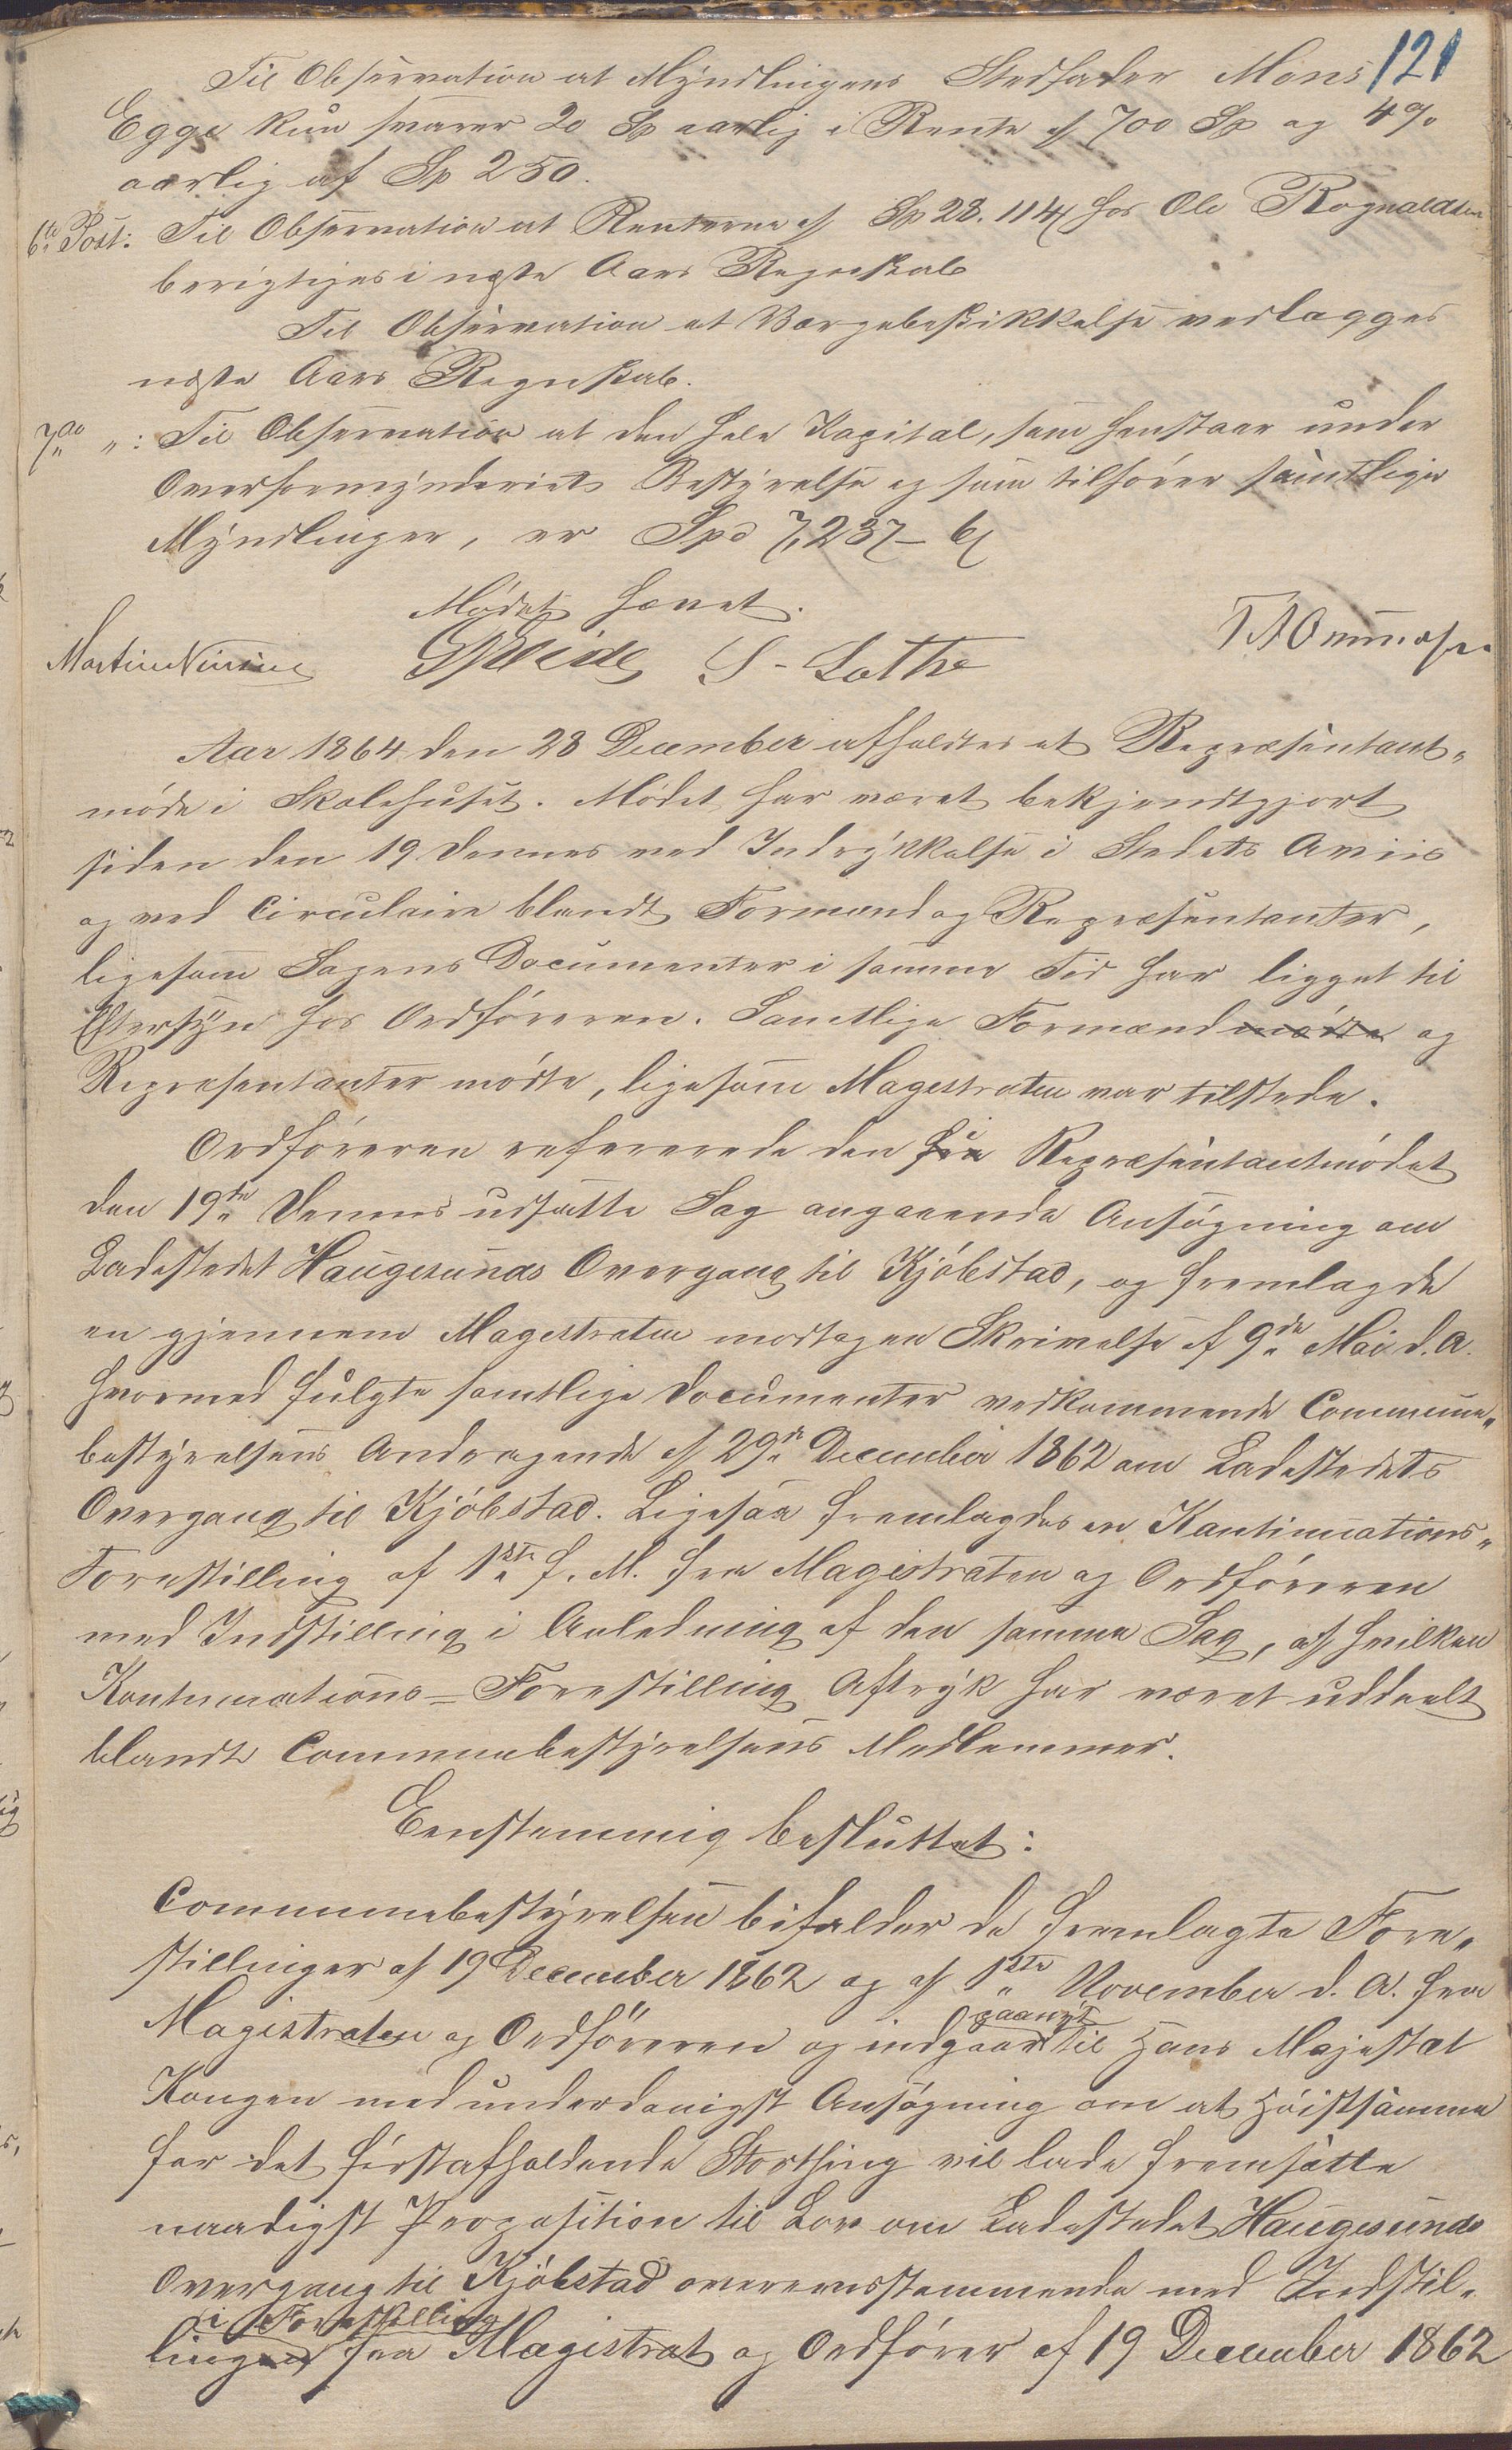 121
Til Observation at Myndlingens Stedfader Mons
Egge kun svarer 20 Sp aarlig i Rente af 700 Sp og 4%
aarlig af Sp 250.
6te Post: Til Observation at Renterne af Sp 28. 114 hos Ole Rognaldsen
berigtiges i næste Aars Regnskab
Til Observation at Værgebeskikkelse vedlægges
næste Aars Regnskab.
7de " : Til Observation at den hele Kapital, som henstaar under
Overformynderiets Bestyrelse og som tilhører samtlige
Myndlinger, er Spd 7,237 - 6
Mødet hævet.
S. Lothe
Aar 1864 den 28 December afholdtes et Repræsentant-
møde i Skolehuset. Mødet har været bekjendtgjort
siden den 19 dennes ved Indrykkelse i Stedets Aviis
og ved Circulaire blandt Formænd og Repræsentanter,
ligesom Sagens Documenter i samme Tid har ligget til
Eftersyn hos Ordføreren. Samtlige Formænd mødte og
Repræsentanter mødte, ligesom Magestraten var tilstede.
Ordføreren refererede den fra Repræsentantmødet
den 19de dennes udsatte Sag angaaende Ansøgning om
Ladestedet Haugesunds Overgang til Kjøbstad, og fremlagde
en gjennem Magestraten modtagen Skrivelse af 9de Mai d. A.
hvormed fulgte samtlige Documenter vedkommende Commune-
bestyrelsens Andragende af 29de December 1862 om Ladestedets
Overgang til Kjøbstad. Ligesaa fremlagdes en Kontinuations-
Forestilling af 1ste f. M. fra Magistraten og Ordføreren
med Indstilling i Anledning af den samme Sag, af hvilken
Kontinuations-Forestilling Aftryk har været uddeelt
blandt Communebestyrelsens Medlemmer.
Eenstemmig besluttet:
Communebestyrelsen bifalder de fremlagte Fore-
stillinger af 19 December 1862 og af 1ste November d. A. fra
Magistraten og Ordføreren og indgaar paanyt til Hans Majestæt
Kongen med underdanigst Ansøgning om at Høistsamme
for det førstafholdende Storthing vil lade fremsætte
naadigst Proposition til Lov om Ladestedet Haugesunds
Overgang til Kjøbstad overeensstemmende med Indstil-
i Forestilling
lingen fra Magistrat og Ordfører af 19 December 1862